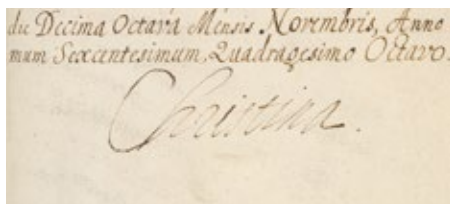 die Decima Octava Mensis Novembris, Anno
mum Sexcentesimum, Quadragesimo Octavo.
Christina.